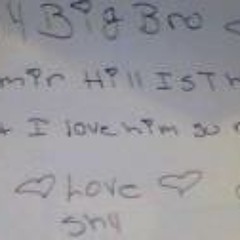 Y Big Bro
min Hill Is Th
I love him so
Love
Shy